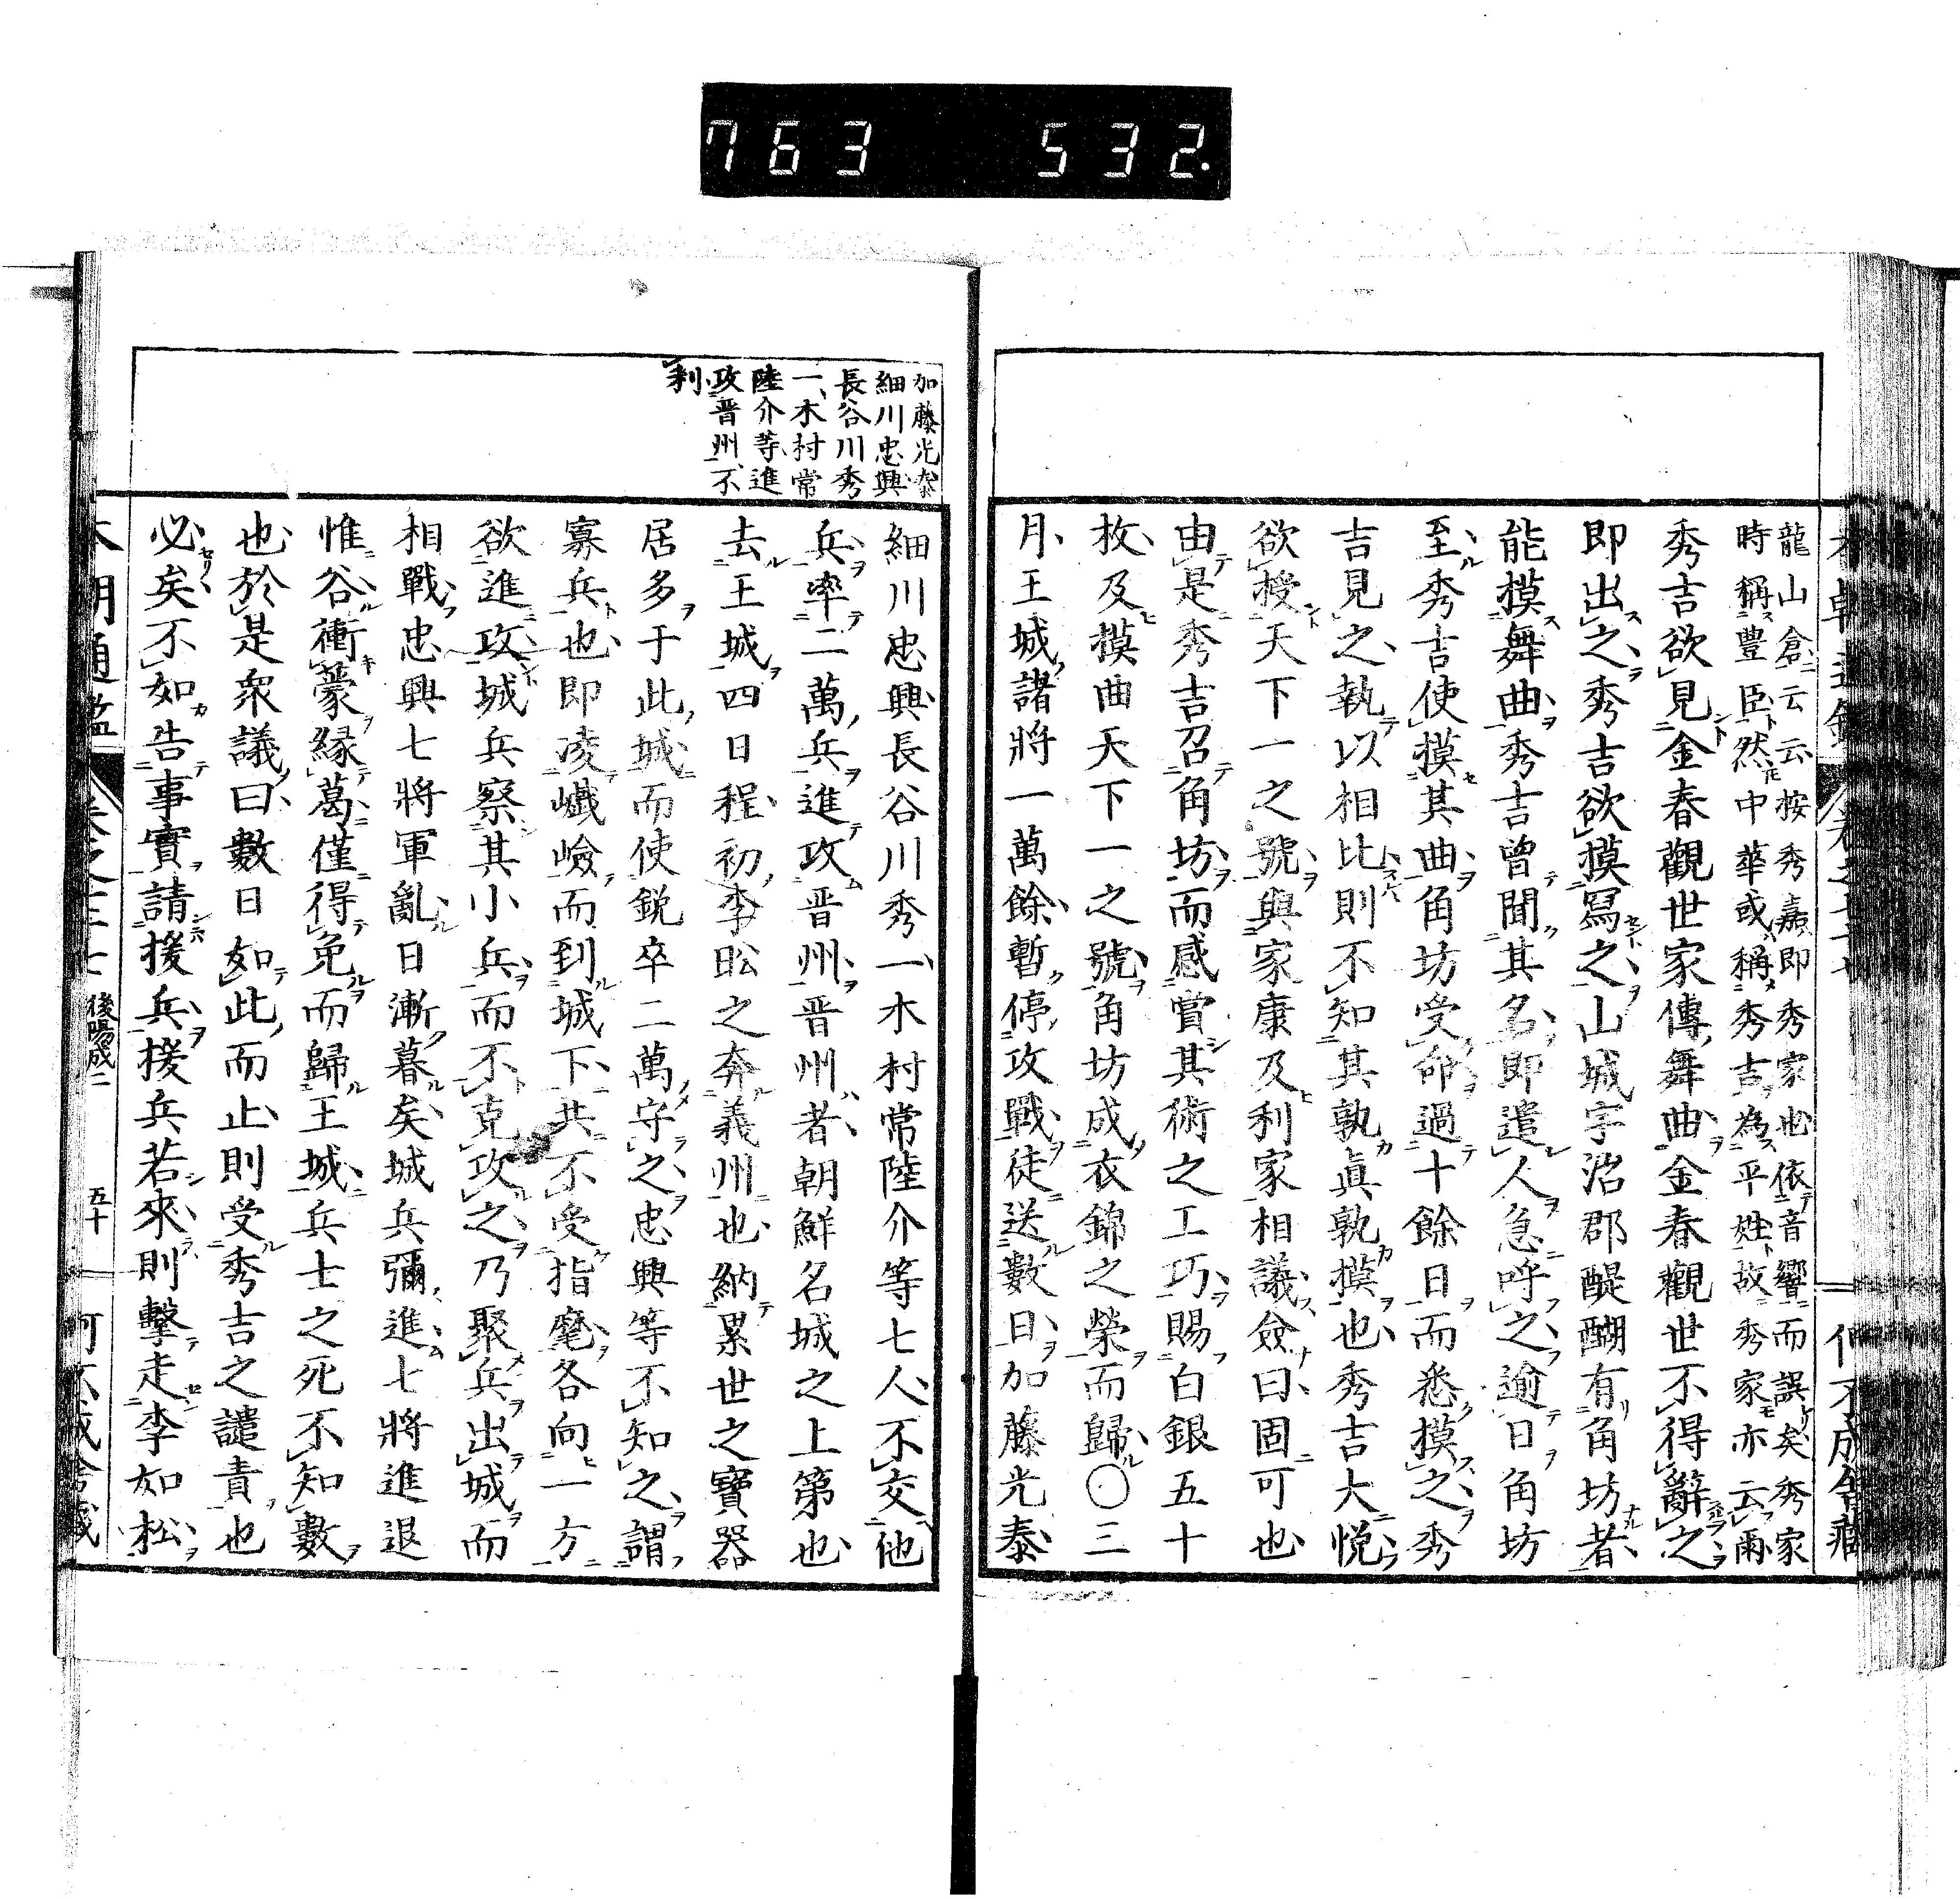 763 532.
龍山倉云云按秀嘉即秀家也依音響而誤矣秀家
時稱豊臣然中華或稱秀吉為平姓故秀家亦云爾
秀吉欲見金春觀世家傳舞曲金春觀世不得辭之
即出之秀吉欲摸寫之山城宇治郡醍醐有角坊者
能摸舞曲秀吉曾聞其名即遣人急呼之逾日角坊
至秀吉使摸其曲角坊受命過十餘日而悉摸之秀
吉見之執以相比則不知其孰眞孰摸也秀吉大悦
欲授天下一之號與家康及利家相議僉曰固可也
由是秀吉召角坊而感賞其術之工巧賜白銀五十
枚及摸曲天下一之號角坊成衣錦之榮而歸○三
月王城諸將一萬餘暫停攻戰徒送數日加藤光泰
加藤光泰
細川忠興
長谷川秀
一木村常
陸介等進
攻晋州不
利
細川忠興長谷川秀一木村常陸介等七人不交他
兵率二萬兵進攻晋州晋州者朝鮮名城之上第也
去王城四日程初李昖之奔義州也納累世之寶器
居多于此城而使鋭卒二萬守之忠興等不知之謂
寡兵也即凌巇嶮而到城下共不受指麾各向一方
欲進攻城兵察其小兵而不克攻之乃聚兵出城而
相戰忠興七將軍亂日漸暮矣城兵彌進七將進退
惟谷衝蘷縁葛僅得免而歸王城兵士之死不知數
也於是衆議曰數日如此而止則受秀吉之譴責也
必矣不如告事實請援兵援兵若來則擊走李如松
本朝通鑑
後陽成二
五十